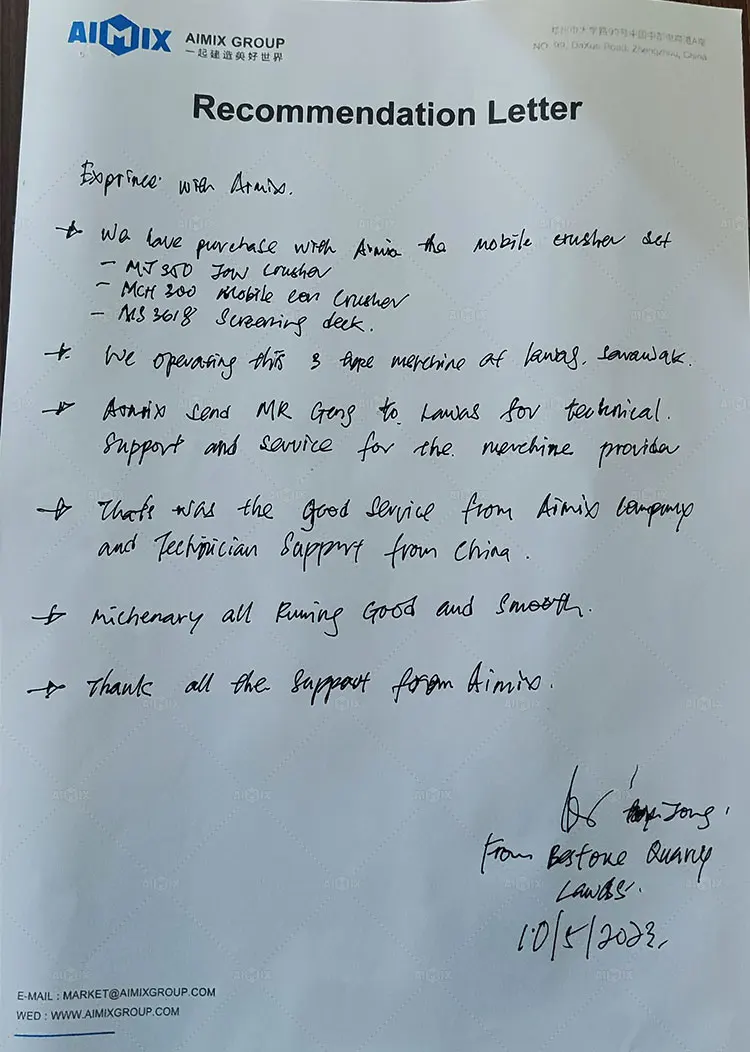 AIMIX
AIMIX GROUP
一起建造美好世界
NO. 99, Daxue Road, Zhengzhou, China
Recommendation Letter
Exprince with Aimix.
→ We have purchase with Aimix the mobile crusher set
- MJ 350 Jow Crusher
- MCH 300 Mobile con Crusher
- MS 3618 Screening deck.
→ We operating this 3 type merchine at Lawas, Sarawak.
→ Aimix send MR Geng to Lawas for technical.
Support and Service for the merchine provider
→ Thats was the good Service from Aimix Company
and Technician Support from China.
→ Michenary all Runing Good and Smooth.
→ Thank all the Support from Aimix.
Jong
From Bestone Quarry
Lawas.
10/5/2023,
E-MAIL : MARKET@AIMIXGROUP.COM
WED : WWW.AIMIXGROUP.COM